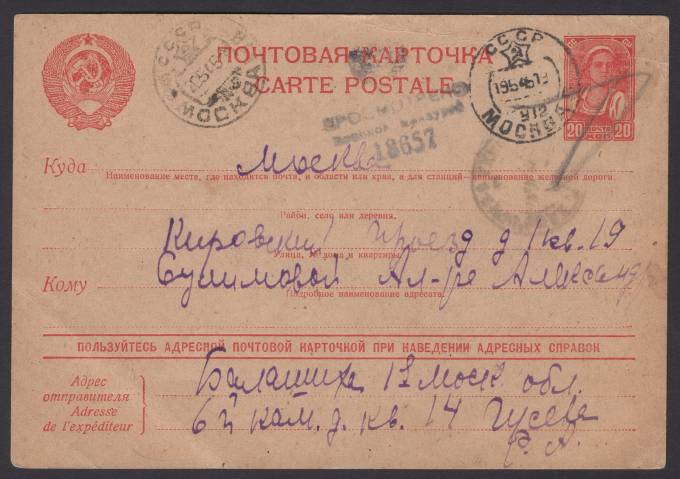 ПОЧТОВАЯ КАРТОЧКА
CARTE POSTALE
СССР
МОСКВА
СССР
19 5 45
МОСКВА
20 ПОЧТА 20
КОП
ПРОСМОТРЕНО
Военной Цензурой
18657
Куда Москва
Наименование места, где находится почта, и области или края, а для станций—наименование железной дороги.
Район, село или деревня.
Кировский Проезд д 1 кв. 19
Улица, № дома и квартиры.
Кому
Сушимовой Ал-ре Александр
Подробное наименование адресата.
ПОЛЬЗУЙТЕСЬ АДРЕСНОЙ ПОЧТОВОЙ КАРТОЧКОЙ ПРИ НАВЕДЕНИИ АДРЕСНЫХ СПРАВОК
Адрес
отправителя
Adresse
de l'expéditeur
Балашиха 12 Моск обл.
6й кам. д. кв. 14 Гусева
Р. А.